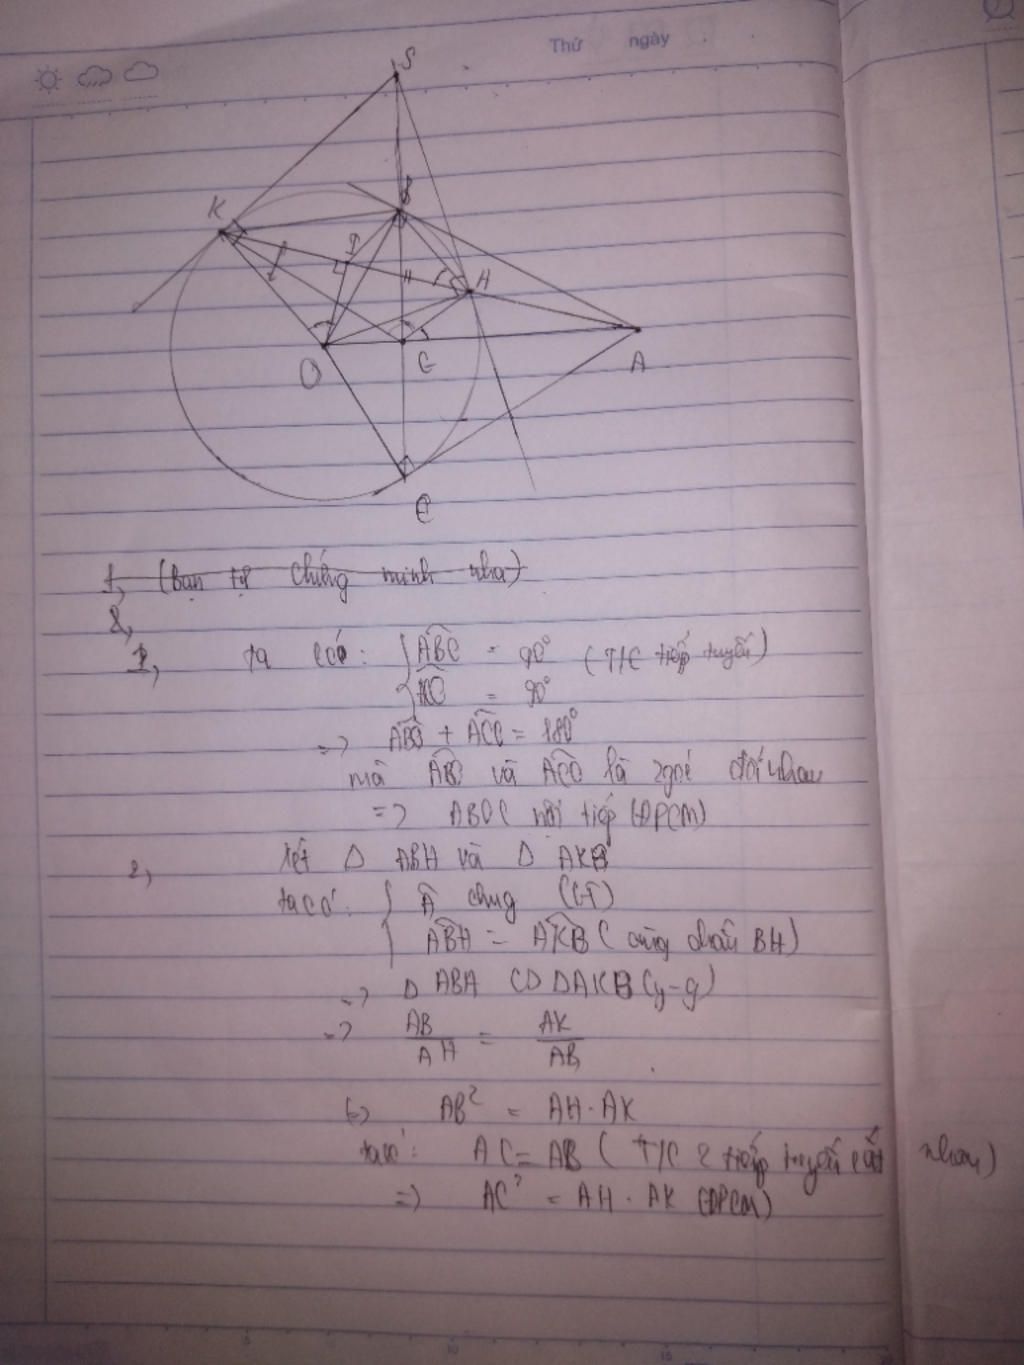 Thứ ngày
S
K
B
D
H
H
O
E
A
C
1, (bạn tự chứng minh nha)
2,
1, ta có: { ABO = 90° (T/C tiếp tuyến)
ACO = 90°
=> ABO + ACO = 180°
mà ABO và ACO là 2 góc đối nhau
=> ABOC nội tiếp (ĐPCM)
2, Xét Δ ABH và Δ AKB
ta có: { Â chung (GT)
ABH = AKB (cùng chắn BH)
=> Δ ABH ∽ Δ AKB (g-g)
=> AB/AH = AK/AB
<=> AB² = AH.AK
ta có: AC = AB (T/C 2 tiếp tuyến cắt nhau)
=> AC² = AH . AK (ĐPCM)